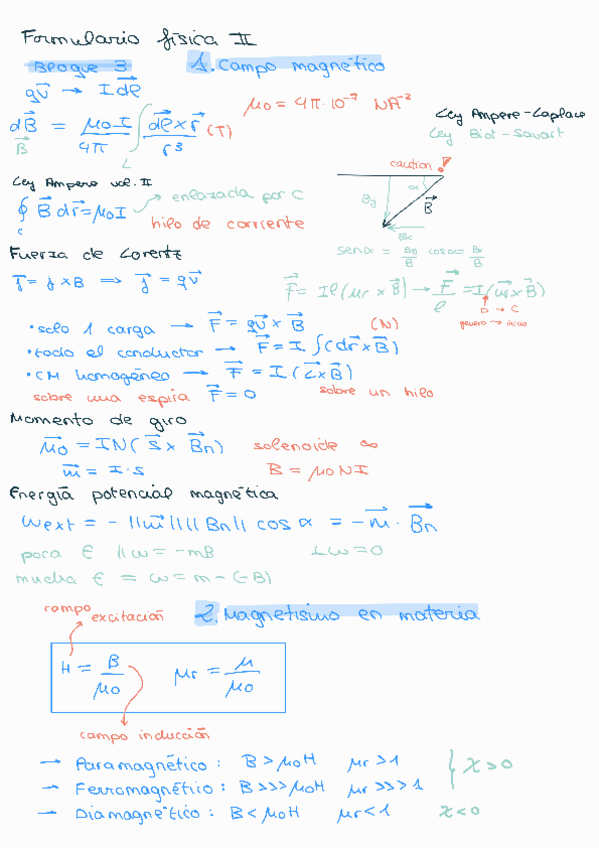 Formulario física II
Bloque 3 1. Campo magnético
qv⃗ → I dl⃗
μ0 = 4π·10⁻⁷ NA⁻²
Ley Ampere-Laplace
Ley Biot-Savart
dB⃗ = μ0 I / 4π ∫ dl⃗ x r⃗ / r³ (T)
B⃗
L
caution!
α
By
B⃗
Bx
Ley Ampere vol. II
∮ B⃗ dr⃗ = μ0 I → enlazada por C
c
hilo de corriente
senα = By/B cosα = Bx/B
Fuerza de Lorentz
f⃗ = j x B ⟹ j⃗ = qv⃗
F⃗ = Il(μr x B⃗) → F⃗/l = I(ur x B⃗)
• solo 1 carga → F⃗ = qv⃗ x B⃗ (N)
• todo el conductor → F⃗ = I ∫(dr⃗ x B⃗)
• CM homogéneo → F⃗ = I (L⃗ x B⃗)
sobre una espira F⃗ = 0 sobre un hilo
Momento de giro
μ⃗0 = IN( S⃗ x B⃗n) solenoide ∞
m⃗ = I·s B = μ0NI
Energía potencial magnética
Wext = - ||m⃗|| ||Bn|| cos α = -m⃗ · B⃗n
poca E ||w = -mB ⊥w = 0
mucha E = w = m - (-B)
campo excitación
2. Magnetismo en materia
H = B/μ0 μr = μ/μ0
campo inducción
→ Paramagnético: B > μ0H μr > 1
→ Ferromagnético: B >>> μ0H μr >>> 1 } χ > 0
→ Diamagnético: B < μ0H μr < 1 χ < 0